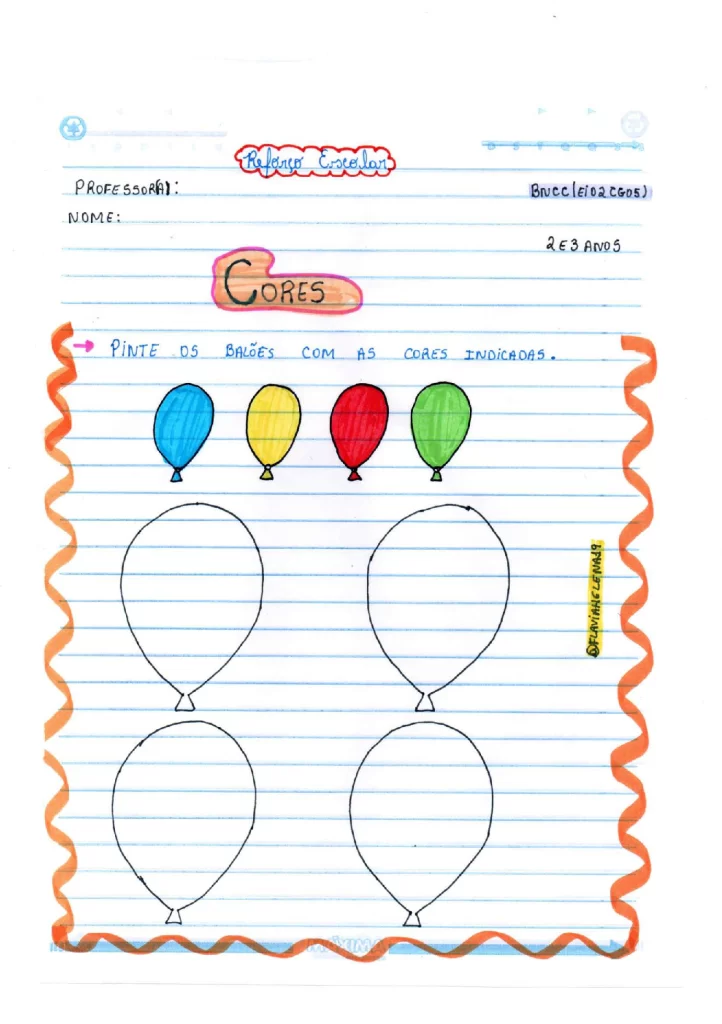 Reforço Escolar
PROFESSOR(A):
BNCC(EI02CG05)
NOME:
2 E 3 ANOS
CORES
→ PINTE OS BALÕES COM AS CORES INDICADAS.
@FLAVIAHELENA19